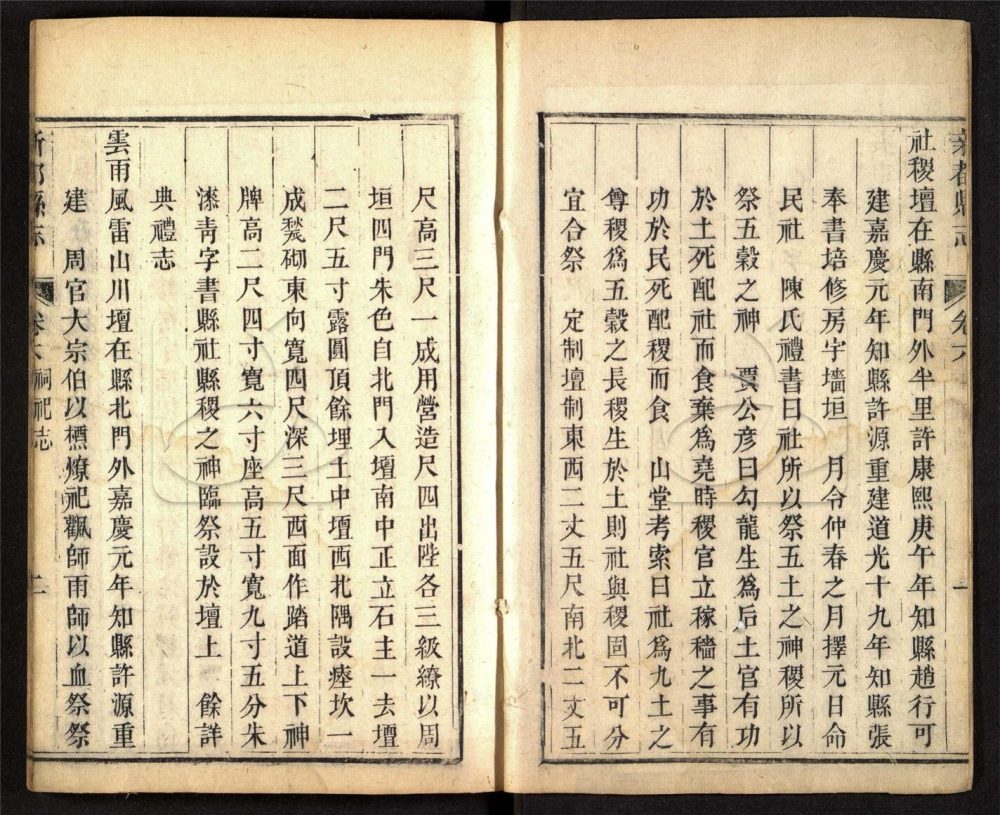 新都縣志 卷六 一
社稷壇在縣南門外半里許康熙庚午年知縣趙行可
建嘉慶元年知縣許源重建道光十九年知縣張
奉書培修房宇墻垣 月令仲春之月擇元日命
民社 陳氏禮書曰社所以祭五土之神稷所以
祭五穀之神 賈公彥曰勾龍生爲后土官有功
於土死配社而食棄爲堯時稷官立稼穡之事有
功於民死配稷而食 山堂考索曰社爲九土之
尊稷爲五穀之長稷生於土則社與稷固不可分
宜合祭 定制壇制東西二丈五尺南北二丈五
尺高三尺一成用營造尺四出陛各三級繚以周
垣四門朱色自北門入壇南中正立石主一去壇
二尺五寸露圓頂餘埋土中壇西北隅設瘞坎一
成甃砌東向寬四尺深三尺西面作踏道上下神
牌高二尺四寸寬六寸座高五寸寬九寸五分朱
漆青字書縣社縣稷之神臨祭設於壇上 餘詳
典禮志
雲雨風雷山川壇在縣北門外嘉慶元年知縣許源重
建 周官大宗伯以槱燎祀飌師雨師以血祭祭
新都縣志 卷六 祠祀志 二